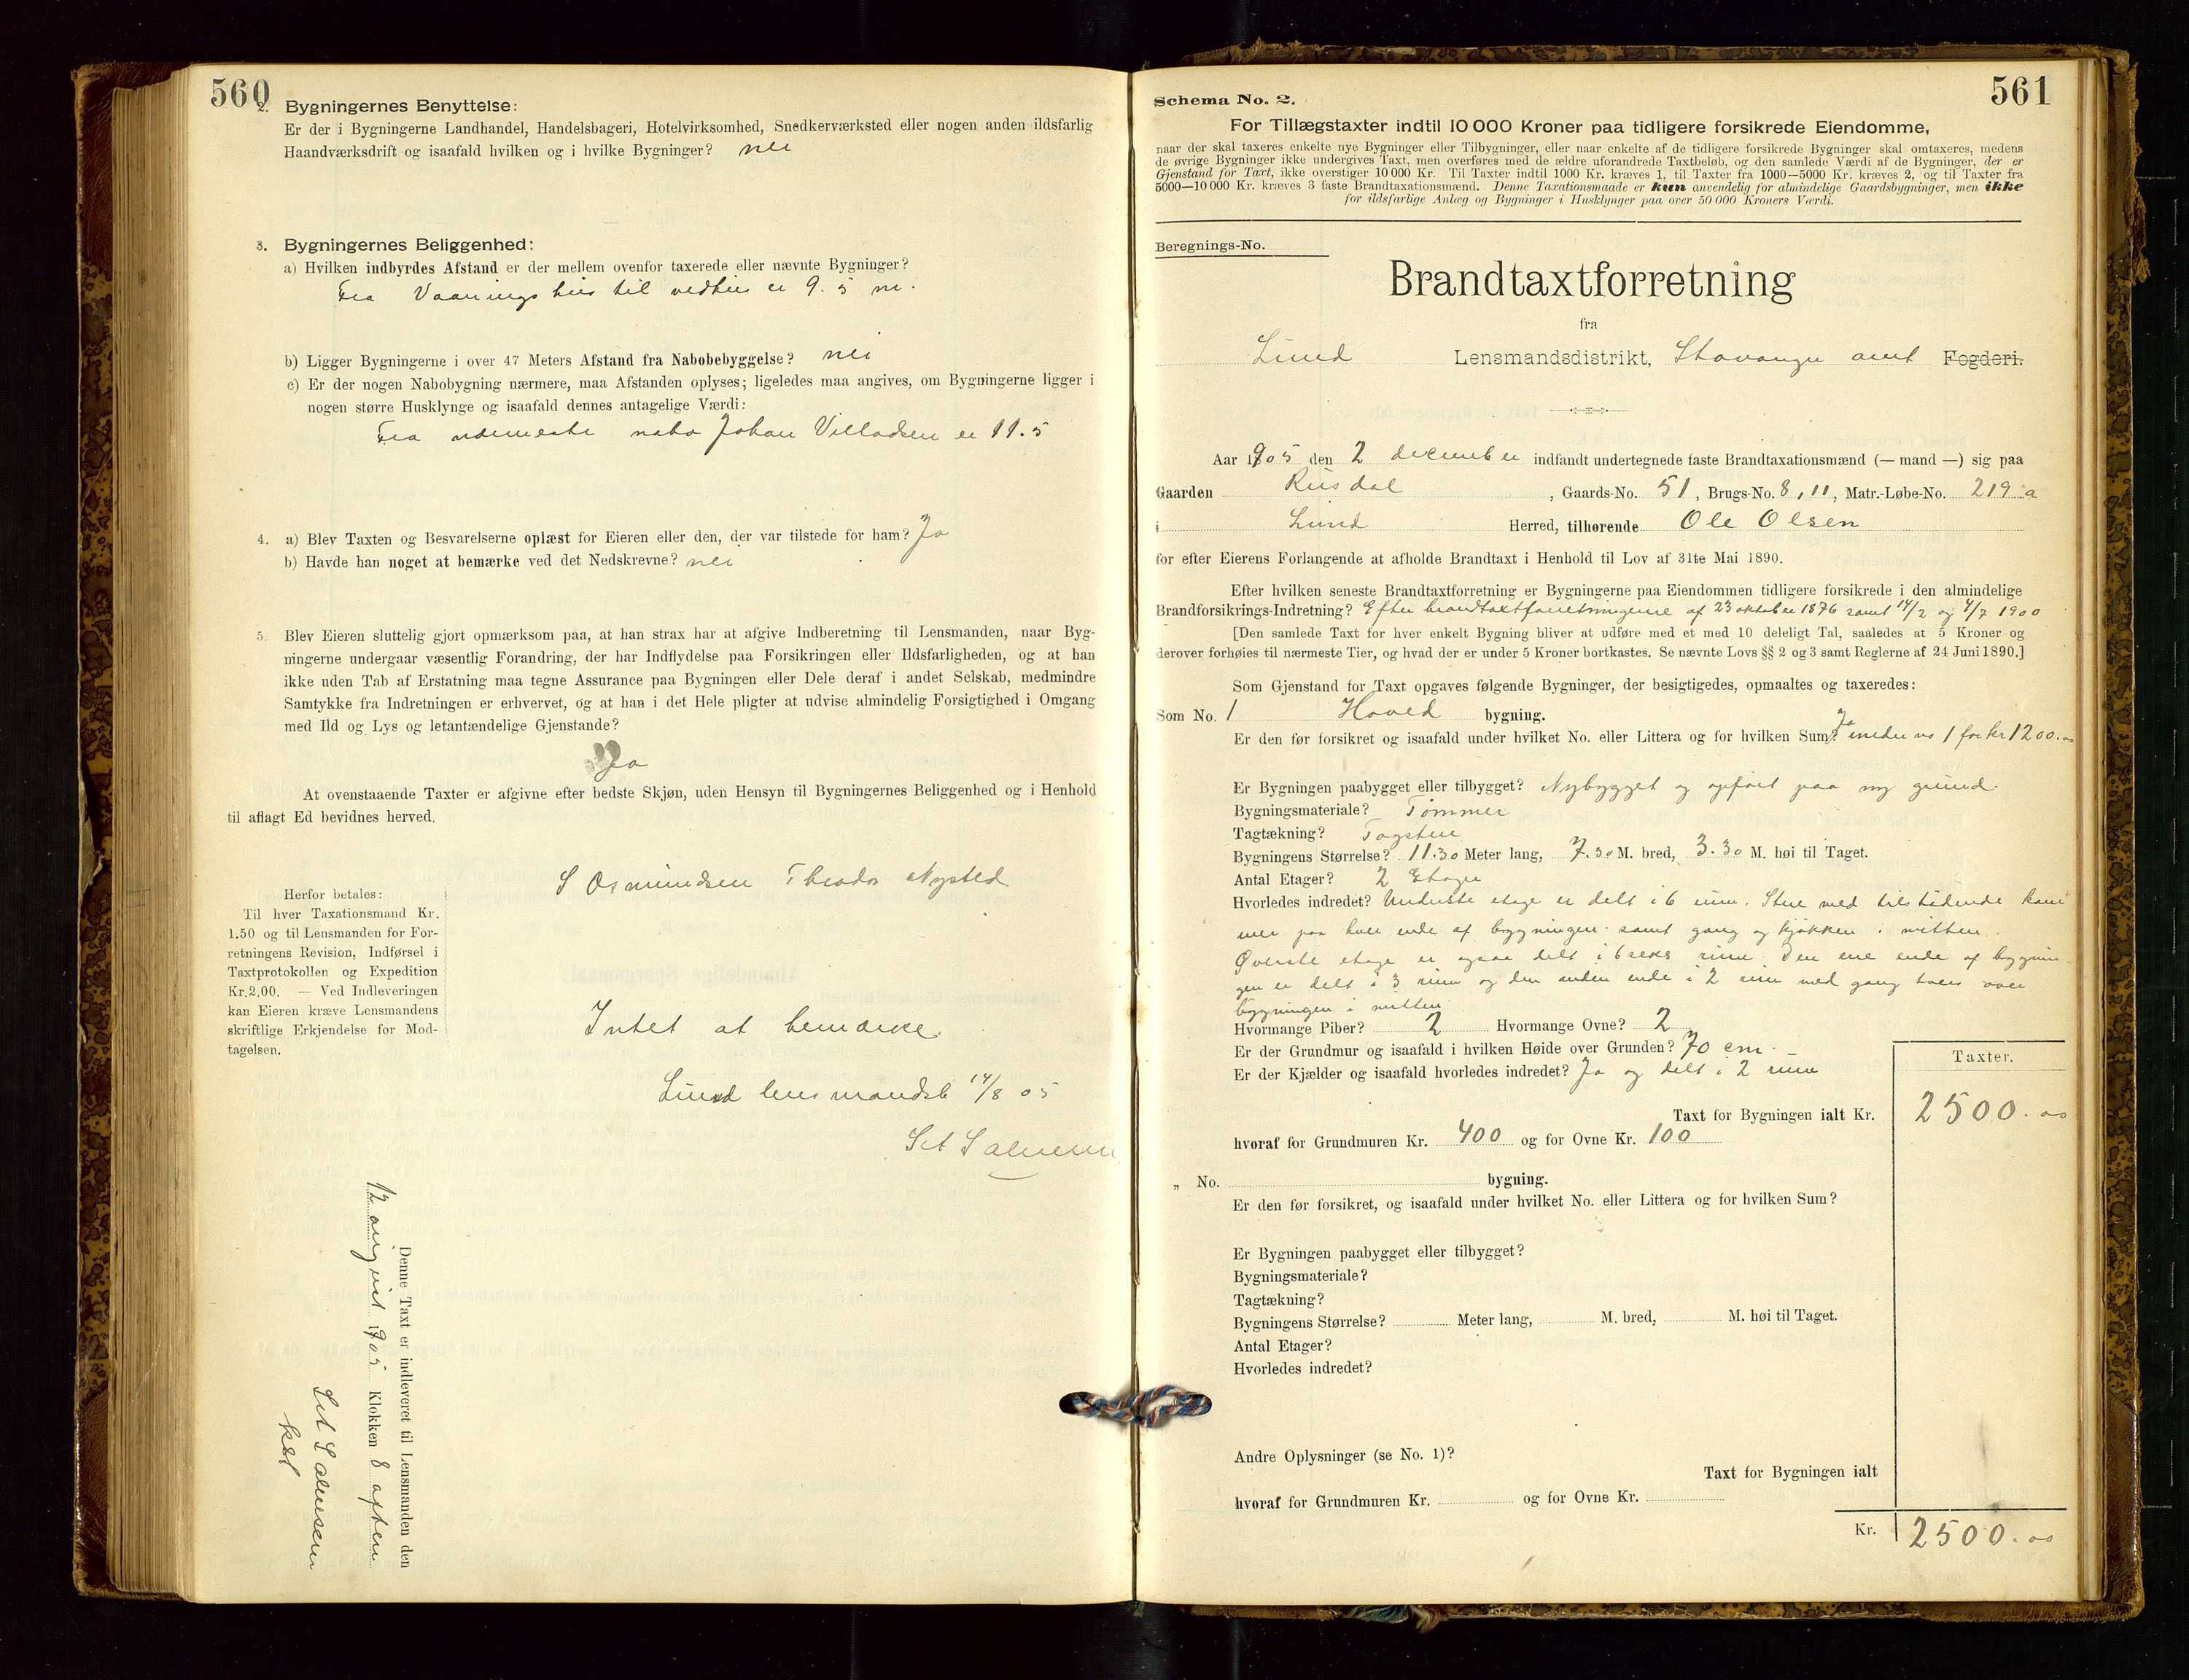 560
2. Bygningernes Benyttelse:
Er der i Bygningerne Landhandel, Handelsbageri, Hotelvirksomhed, Snedkerværksted eller nogen anden ildsfarlig
Haandværksdrift og isaafald hvilken og i hvilke Bygninger? nei
3. Bygningernes Beliggenhed:
a) Hvilken indbyrdes Afstand er der mellem ovenfor taxerede eller nævnte Bygninger?
Fra Vaaningshus til vedhus er 9.5 m.
b) Ligger Bygningerne i over 47 Meters Afstand fra Nabobebyggelse? nei
c) Er der nogen Nabobygning nærmere, maa Afstanden oplyses; ligeledes maa angives, om Bygningerne ligger i
nogen større Husklynge og isaafald dennes antagelige Værdi:
Fra nærmeste nabo Johan Villadsen er 11.5
4. a) Blev Taxten og Besvarelserne oplæst for Eieren eller den, der var tilstede for ham? Ja
b) Havde han noget at bemærke ved det Nedskrevne? nei
5. Blev Eieren sluttelig gjort opmærksom paa, at han strax har at afgive Indberetning til Lensmanden, naar Byg-
ningerne undergaar væsentlig Forandring, der har Indflydelse paa Forsikringen eller Ildsfarligheden, og at han
ikke uden Tab af Erstatning maa tegne Assurance paa Bygningen eller Dele deraf i andet Selskab, medmindre
Samtykke fra Indretningen er erhvervet, og at han i det Hele pligter at udvise almindelig Forsigtighed i Omgang
med Ild og Lys og letantændelige Gjenstande?
Ja
At ovenstaaende Taxter er afgivne efter bedste Skjøn, uden Hensyn til Bygningernes Beliggenhed og i Henhold
til aflagt Ed bevidnes herved.
S Osmundsen Theodor Nysted
Herfor betales:
Til hver Taxationsmand Kr.
1.50 og til Lensmanden for For-
retningens Revision, Indførsel i
Taxtprotokollen og Expedition
Kr. 2.00. — Ved Indleveringen
kan Eieren kræve Lensmandens
skriftlige Erkjendelse for Mod-
tagelsen.
Intet at bemærke.
Lund lensmandsb 14/8 05
Set Salvesen
Denne Taxt er indleveret til Lensmanden den
12 august 1905 Klokken 8 aften
Set Salvesen
kst
561
Schema No. 2.
For Tillægstaxter indtil 10 000 Kroner paa tidligere forsikrede Eiendomme,
naar der skal taxeres enkelte nye Bygninger eller Tilbygninger, eller naar enkelte af de tidligere forsikrede Bygninger skal omtaxeres, medens
de øvrige Bygninger ikke undergives Taxt, men overføres med de ældre uforandrede Taxtbeløb, og den samlede Værdi af de Bygninger, der er
Gjenstand for Taxt, ikke overstiger 10 000 Kr. Til Taxter indtil 1000 Kr. kræves 1, til Taxter fra 1000—5000 Kr. kræves 2, og til Taxter fra
5000—10 000 Kr. kræves 3 faste Brandtaxationsmænd. Denne Taxationsmaade er kun anvendelig for almindelige Gaardsbygninger, men ikke
for ildsfarlige Anlæg og Bygninger i Husklynger paa over 50 000 Kroners Værdi.
Beregnings-No.
Brandtaxtforretning
fra
Lund Lensmandsdistrikt, Stavanger amt Fogderi.
Aar 1905 den 2 december indfandt undertegnede faste Brandtaxationsmænd (— mand —) sig paa
Gaarden Rusdal, Gaards-No. 51, Brugs-No. 8, 11, Matr.-Løbe-No. 219 a
i Lund Herred, tilhørende Ole Olsen
for efter Eierens Forlangende at afholde Brandtaxt i Henhold til Lov af 31te Mai 1890.
Efter hvilken seneste Brandtaxtforretning er Bygningerne paa Eiendommen tidligere forsikrede i den almindelige
Brandforsikrings-Indretning? Efter brandtaxtforretningerne af 23 oktober 1876 samt 14/2 og 4/7 1900
[Den samlede Taxt for hver enkelt Bygning bliver at udføre med et med 10 deleligt Tal, saaledes at 5 Kroner og
derover forhøies til nærmeste Tier, og hvad der er under 5 Kroner bortkastes. Se nævnte Lovs §§ 2 og 3 samt Reglerne af 24 Juni 1890.]
Som Gjenstand for Taxt opgaves følgende Bygninger, der besigtigedes, opmaaltes og taxeredes:
Som No. 1 Hoved bygning.
Er den før forsikret og isaafald under hvilket No. eller Littera og for hvilken Sum? Ja under no 1 for kr 1200.00
Er Bygningen paabygget eller tilbygget? Nybygget og opført paa ny grund.
Bygningsmateriale? Tømmer
Tagtækning? Tagsten
Bygningens Størrelse? 11.30 Meter lang, 7.30 M. bred, 3.30 M. høi til Taget.
Antal Etager? 2 Etager
Hvorledes indredet? Underste etage er delt i 6 rum. Stue med tilstødende kam
mer paa hver ende af bygningen samt gang og kjøkken i mitten.
Øverste etage er ogsaa delt i 6 seks rum. Den ene ende af bygnin-
gen er delt i 3 rum og den anden ende i 2 rum med gang tvers over
bygningen i mitten
Hvormange Piber? 2 Hvormange Ovne? 2
Er der Grundmur og isaafald i hvilken Høide over Grunden? 70 cm.
Er der Kjælder og isaafald hvorledes indredet? Ja og delt i 2 rum
Taxter.
Taxt for Bygningen ialt Kr. 2500.00
hvoraf for Grundmuren Kr. 400 og for Ovne Kr. 100
„ No. bygning.
Er den før forsikret, og isaafald under hvilket No. eller Littera og for hvilken Sum?
Er Bygningen paabygget eller tilbygget?
Bygningsmateriale?
Tagtækning?
Bygningens Størrelse? Meter lang, M. bred, M. høi til Taget.
Antal Etager?
Hvorledes indredet?
Andre Oplysninger (se No. 1)?
Taxt for Bygningen ialt
hvoraf for Grundmuren Kr. og for Ovne Kr.
Kr. 2500.00